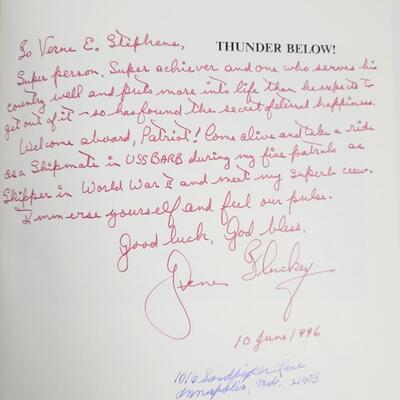 To Verne E. Stephens,
THUNDER BELOW!
Super person, Super achiever and one who serves his
country well and puts more into life than he expects to
get out of it - so has found the secret of eternal happiness.
Welcome aboard, Patriot! Come alive and take a ride
as a Shipmate in USS BARB during my five patrols as
Skipper in World War II and meet my superb crew.
Immerse yourself and feel our pulse.
Good luck, God bless,
Gene Fluckey
10 June 1996
1016 Sandpiper Lane
Annapolis, Md. 21403